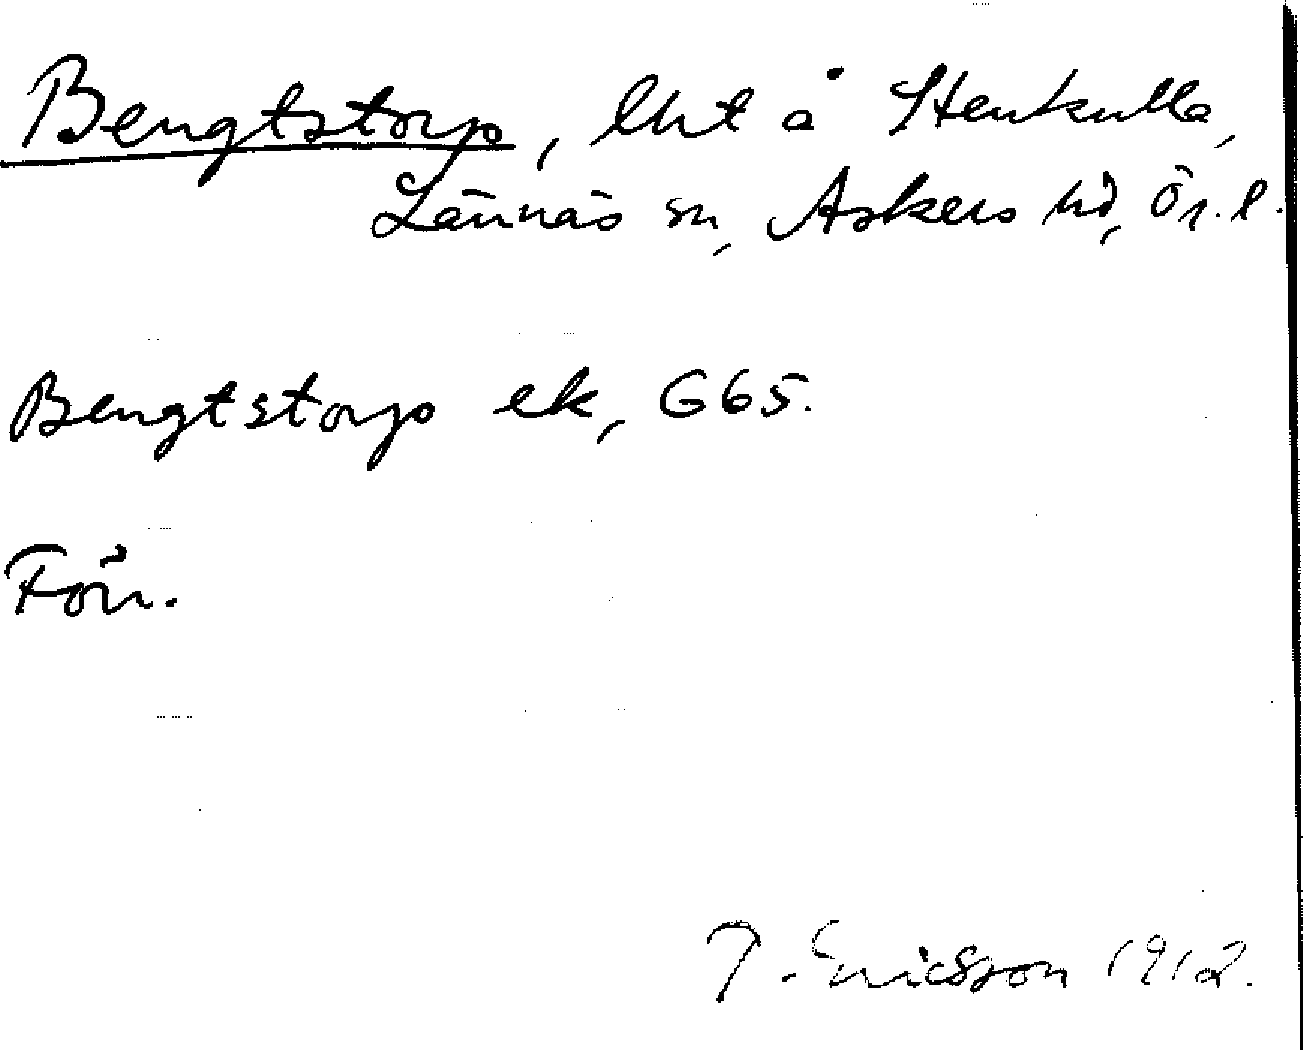 Bengtstorp, lht å Stenkulla,
Lännäs sn, Askers hd, Ör. l.
Bengtstorp ek, G65.
Förr.
T. Ericsson 1912.